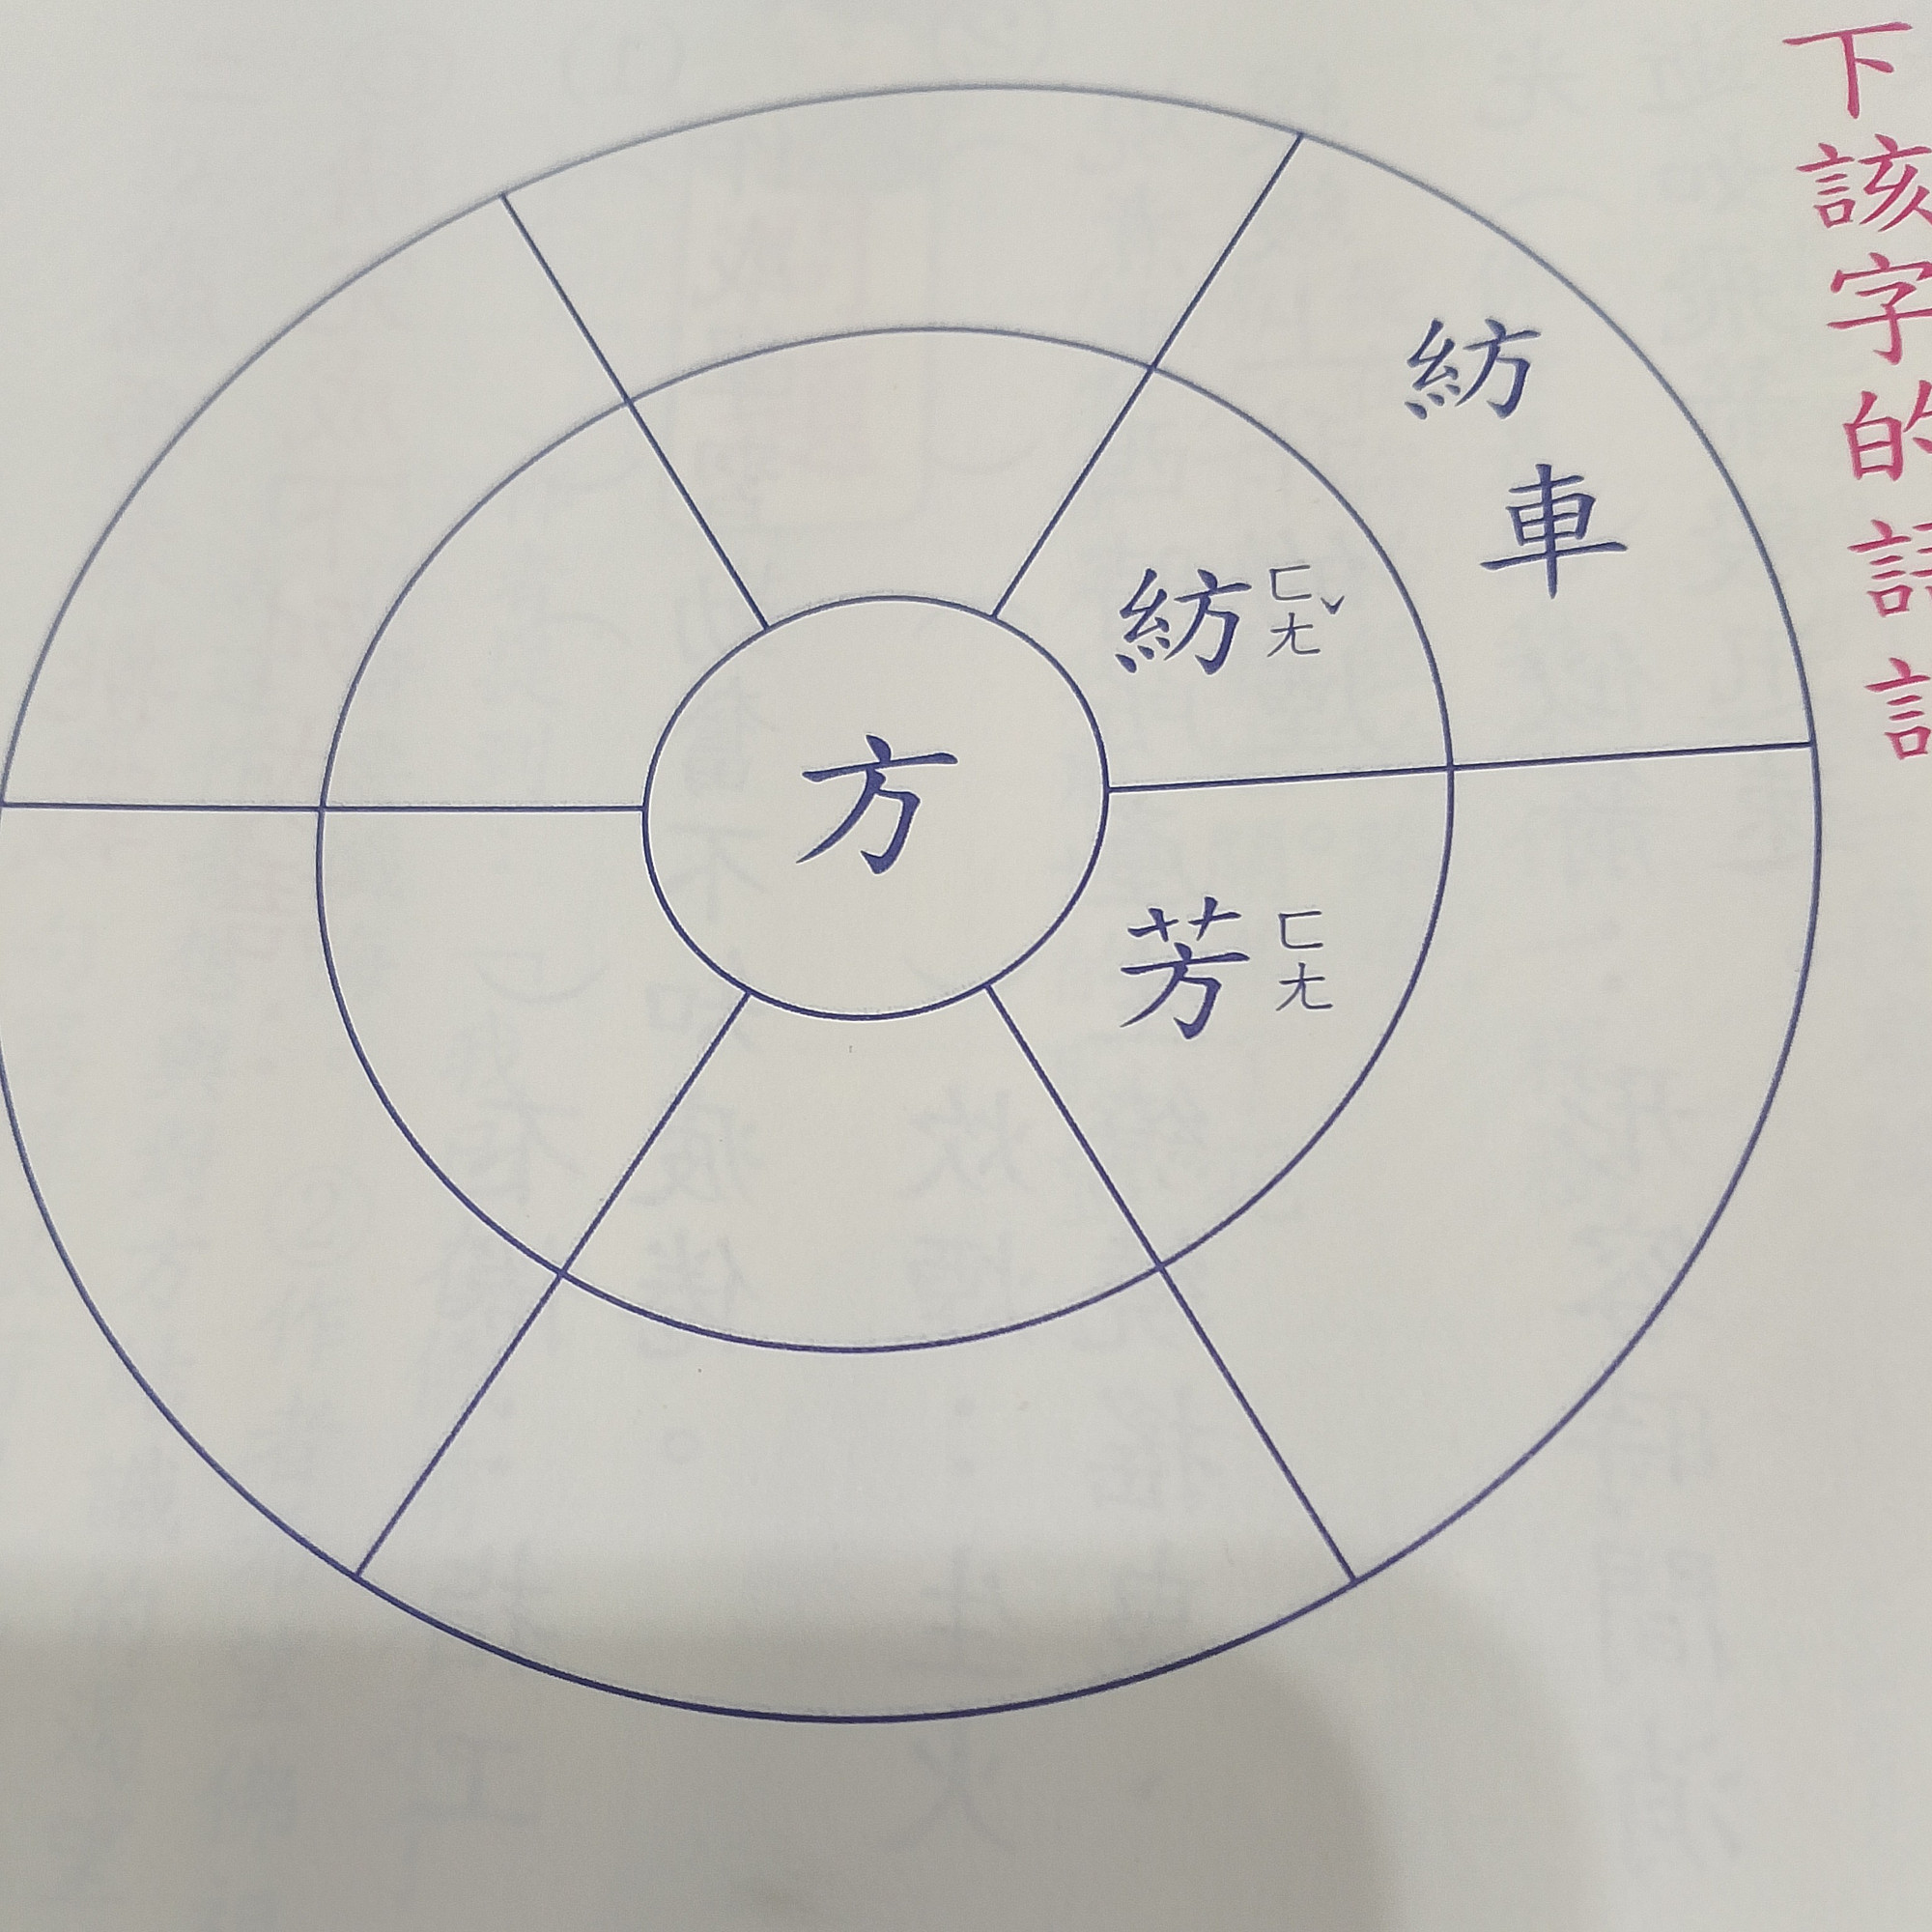 下該字的語詞
紡車
紡ㄈㄤˇ
方
芳ㄈㄤ